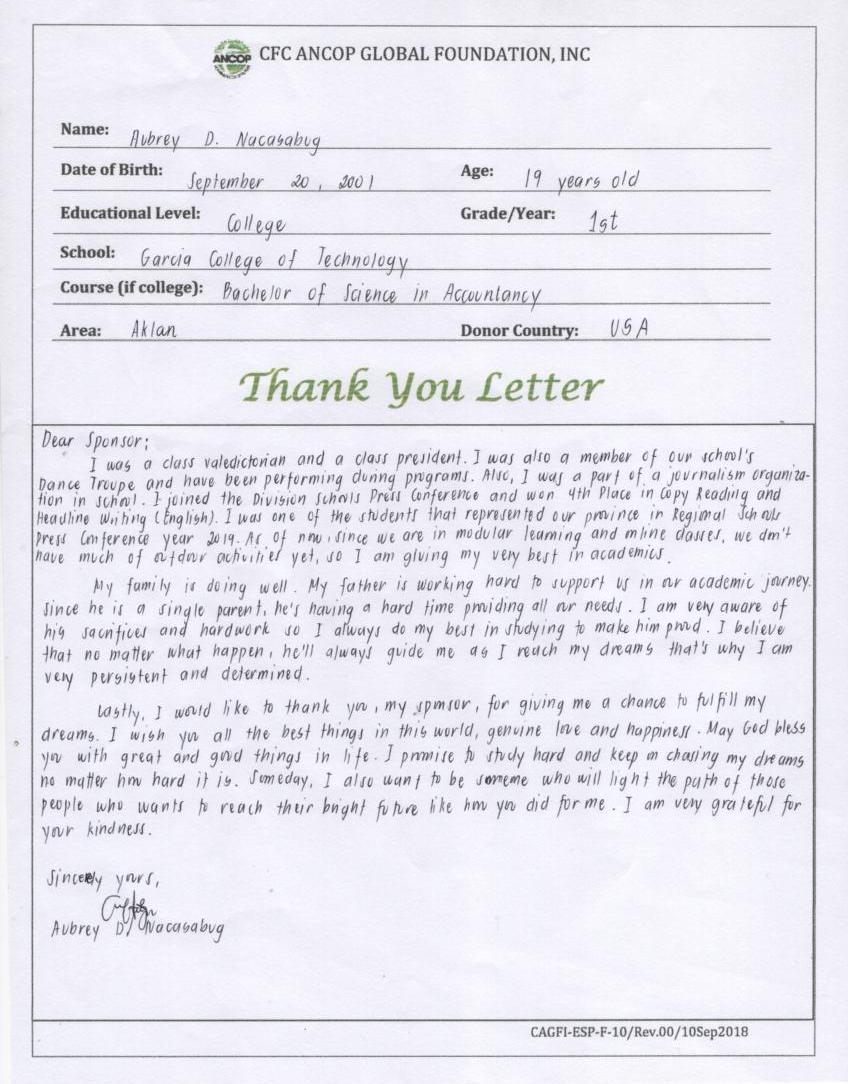 ANCOP CFC ANCOP GLOBAL FOUNDATION, INC
Name: Aubrey D. Nacasabug
Date of Birth: September 20, 2001 Age: 19 years old
Educational Level: College Grade/Year: 1st
School: Garcia College of Technology
Course (if college): Bachelor of Science in Accountancy
Area: Aklan Donor Country: USA
Thank You Letter
Dear Sponsor;
I was a class valedictorian and a class president. I was also a member of our school's
Dance Troupe and have been performing during programs. Also, I was a part of a journalism organiza-
tion in school. I joined the Division Schools Press Conference and won 4th Place in Copy Reading and
Headline Writing (English). I was one of the students that represented our province in Regional Schools
Press Conference year 2019. As of now, since we are in modular learning and online classes, we don't
have much of outdoor activities yet, so I am giving my very best in academics.
My family is doing well. My father is working hard to support us in our academic journey.
Since he is a single parent, he's having a hard time providing all our needs. I am very aware of
his sacrifices and hardwork so I always do my best in studying to make him proud. I believe
that no matter what happen, he'll always guide me as I reach my dreams that's why I am
very persistent and determined.
Lastly, I would like to thank you, my sponsor, for giving me a chance to fulfill my
dreams. I wish you all the best things in this world, genuine love and happiness. May God bless
you with great and good things in life. I promise to study hard and keep on chasing my dreams
no matter how hard it is. Someday, I also want to be someone who will light the path of those
people who wants to reach their bright future like how you did for me. I am very grateful for
your kindness.
Sincerely yours,
Aubrey D. Nacasabug
CAGFI-ESP-F-10/Rev.00/10Sep2018